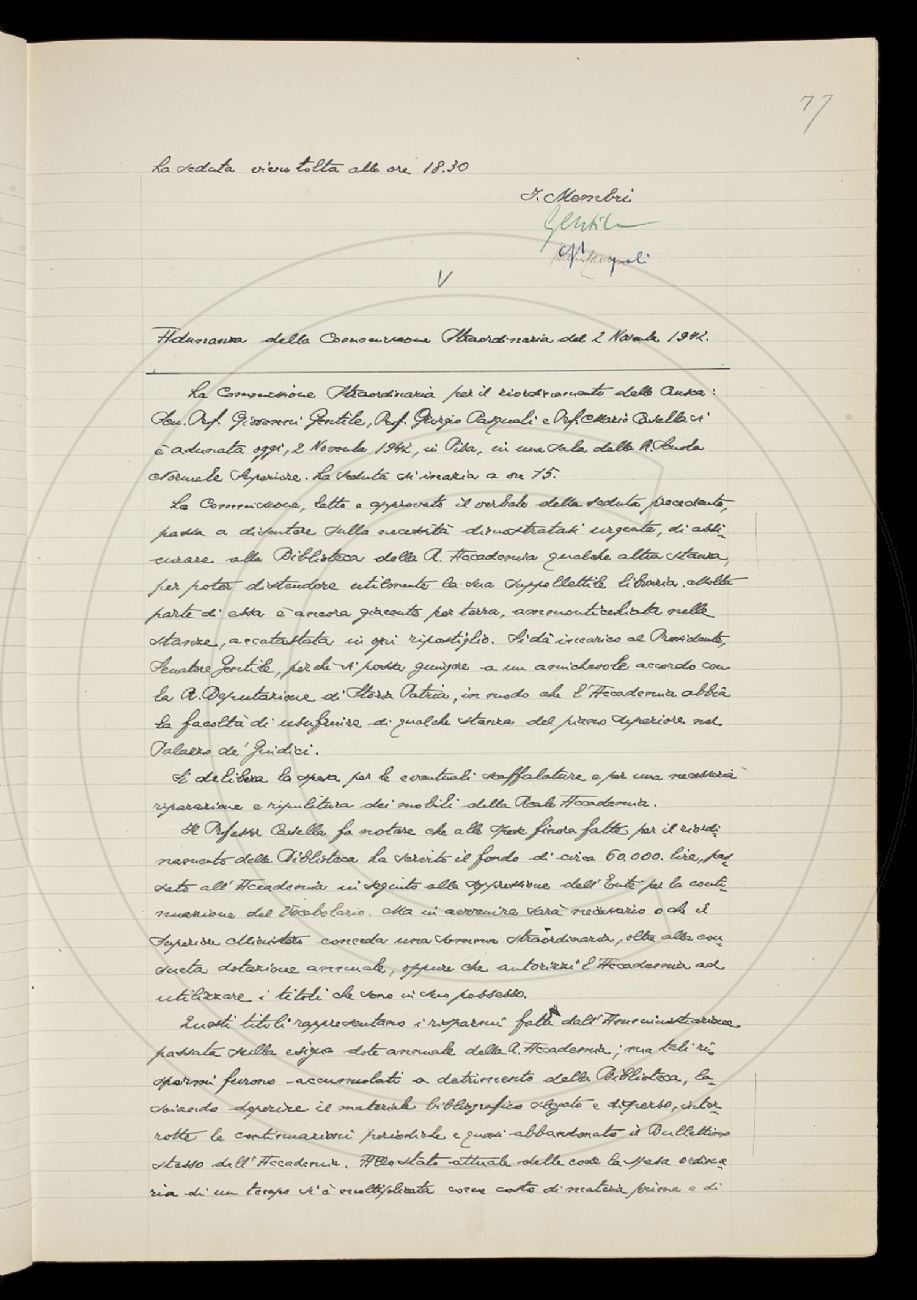 77
La seduta viene tolta alle ore 18.30
I. Membri
Gentile
Pasquali
V
Adunanza della Commissione Straordinaria del 2 Novembre 1942.
La Commissione Straordinaria per il riordinamento della Crusca:
Sen. Prof. Giovanni Gentile, Prof. Giorgio Pasquali e Prof. Mario Casella si
è adunata oggi, 2 Novembre 1942, in Pisa, in una sala della R. Scuola
Normale Superiore. La seduta si inizia a ore 15.
La Commissione, letto e approvato il verbale della seduta precedente,
passa a discutere sulla necessità dimostratasi urgente, di assi-
curare alla Biblioteca della R. Accademia qualche altra stanza,
per poter distendere utilmente la sua suppellettile libraria. Molta
parte di essa è ancora giacente per terra, ammonticchiata nelle
stanze, accatastata in ogni ripostiglio. Si dà incarico al Presidente,
Senatore Gentile, perché si possa giungere a un amichevole accordo con
la R. Deputazione di Storia Patria, in modo che l'Accademia abbia
la facoltà di usufruire di qualche stanza del piano superiore nel
Palazzo de' Giudici.
Si delibera la spesa per le eventuali scaffalature e per una necessaria
riparazione e ripulitura dei mobili della Reale Accademia.
Il Professor Casella fa notare che alle spese finora fatte per il riordi-
namento della Biblioteca ha servito il fondo di circa 60.000. lire, pas-
sato all'Accademia in seguito alla soppressione dell'Ente per la conti-
nuazione del Vocabolario. Ma in avvenire sarà necessario o che il
Superiore Ministero conceda una somma straordinaria, oltre alla con-
sueta dotazione annuale, oppure che autorizzi l'Accademia ad
utilizzare i titoli che sono in suo possesso.
Questi titoli rappresentano i risparmi fatti dall'Amministrazione
passata sulla esigua dote annuale della R. Accademia; ma tali ri-
sparmi furono accumulati a detrimento della Biblioteca, la-
sciando deperire il materiale bibliografico slegato e disperso, inter-
rotte le continuazioni periodiche e quasi abbandonato il Bullettino
stesso dell'Accademia. Allo stato attuale delle cose la spesa ordina-
ria di un tempo si è moltiplicata come costo di materia prima e di